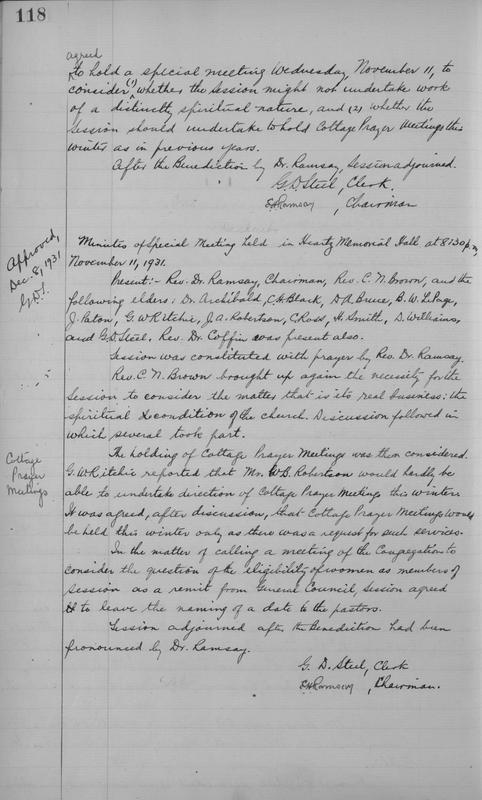 118
agreed
to hold a special meeting Wednesday, November 11, to
consider (1) whether the Session might not undertake work
of a distinctly spiritual nature, and (2) whether the
Session should undertake to hold Cottage Prayer Meetings this
winter as in previous years.
After the Benediction by Dr. Ramsay, Session adjourned.
G.D. Steel, Clerk.
Ramsay, Chairman
Approved,
Dec. 8, 1931
G.D.S.
Minutes of Special Meeting held in Heartz Memorial Hall at 8:30 p.m.,
November 11, 1931.
Present:- Rev. Dr. Ramsay, Chairman, Rev. C. N. Brown, and the
following elders: Dr. Archibald, C.H. Black, D.A. Bruce, B.W. LePage,
J. Paton, G.W. Ritchie, J.A. Robertson, C. Ross, H. Smith, D. Williams,
and G.D. Steel. Rev. Dr. Coffin was present also.
Session was constituted with prayer by Rev. Dr. Ramsay.
Rev. C. N. Brown brought up again the necessity for the
Session to consider the matter that is its real business: the
spiritual condition of the church. Discussion followed in
which several took part.
Cottage
Prayer
Meetings
The holding of Cottage Prayer Meetings was then considered.
G.W. Ritchie reported that Mr. W.B. Robertson would hardly be
able to undertake direction of Cottage Prayer Meetings this winter.
It was agreed, after discussion, that Cottage Prayer Meetings would
be held this winter only as there was a request for such services.
In the matter of calling a meeting of the Congregation to
consider the question of the eligibility of women as members of
Session as a remit from General Council, Session agreed
to leave the naming of a date to the pastors.
Session adjourned after the Benediction had been
pronounced by Dr. Ramsay.
G. D. Steel, Clerk
Ramsay, Chairman.